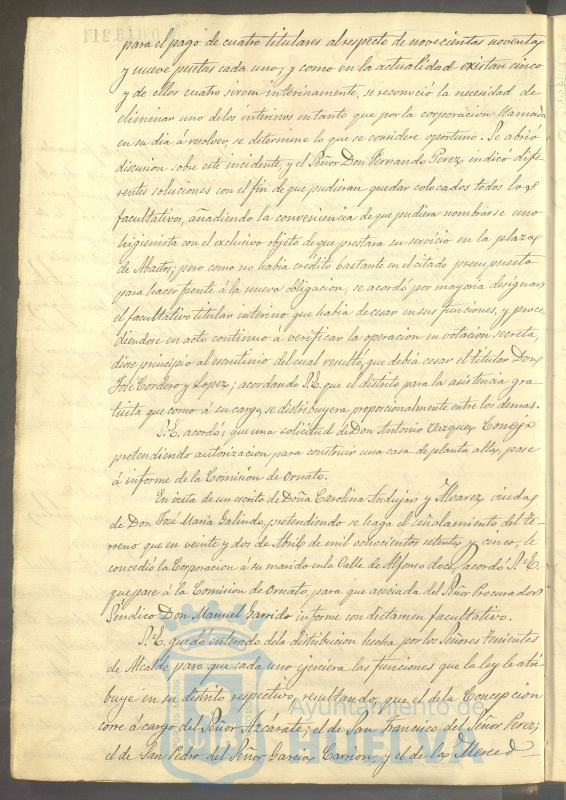 para el pago de cuatro titulares al respecto de novecientas noventa
y nueve pesetas cada uno; y como en la actualidad existan cinco
y de ellos cuatro sirven interinamente, se reconoció la necesidad de
eliminar uno de los interinos en tanto que por la corporacion, llamada
en su dia á resolver, se determine lo que se considere oportuno. Se abrió
discusion sobre este incidente, y el Señor Don Fernando Perez indicó dife-
rentes soluciones con el fin de que pudieran quedar colocados todos los
facultativos, añadiendo la conveniencia de que pudiera nombrarse uno
higienista con el exclusivo objeto de que prestara su servicio en la plaza
de Abastos; pero como no habia crédito bastante en el citado presupuesto
para hacer frente á la nueva obligacion, se acordó por mayoria designar
el facultativo titular interino que habia de cesar en sus funciones, y proce
diendose en acto continuo á verificar la operacion en votacion secreta,
diose principio al escrutinio del cual resultó, que debia cesar el titular Don
José Cordero y Lopez; acordando S.E. que el distrito para la asistencia gra-
tuita que como á su cargo, se distribuyera proporcionalmente entre los demas.
S.E. acordó; que una solicitud de Don Antonio Vazquez
pretendiendo autorizacion para construir una casa de planta alta, pase
á informe de la Comision de Ornato.
En vista de un escrito de Doña Carolina Andujar y Alvarez viuda
de Don José Maria Galindo, pretendiendo se haga el señalamiento del te-
rreno que en veinte y dos de Abril de mil ochocientos setenta y cinco, le
concedió la Corporacion á su marido en la Calle de Alfonso doce, acordó S.E.
que pase á la Comision de Ornato, para que asociada del Señor Procurador
Sindico Don Manuel Garrido informe con dictamen facultativo.
S.E. quedó enterado de la distribucion hecha por los Señores Tenientes
de Alcalde para que cada uno ejerciera las funciones que la ley le atri-
buye en su distrito respectivo, resultando, que el de la Concepcion
corre á cargo del Señor Azcárate; el de San Francisco del Señor Perez;
el de San Pedro del Señor Garcia Carrion, y el de la Merced
Ayuntamiento de
HUELVA